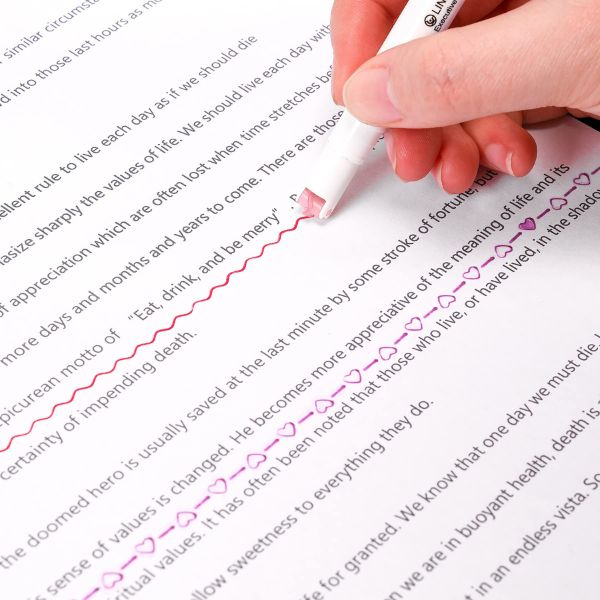 similar circumsta
d into those last hours as mo
ellent rule to live each day as if we should die
asize sharply the values of life. We should live each day with
of appreciation which are often lost when time stretches be
more days and months and years to come. There are those
picurean motto of "Eat, drink, and be merry"
certainty of impending death.
the doomed hero is usually saved at the last minute by some stroke of fortune, bu
s sense of values is changed. He becomes more appreciative of the meaning of life and its
iritual values. It has often been noted that those who live, or have lived, in the shadow
llow sweetness to everything they do.
ife for granted. We know that one day we must die.
n we are in buoyant health, death is
t in an endless vista. So
LIN
Executive